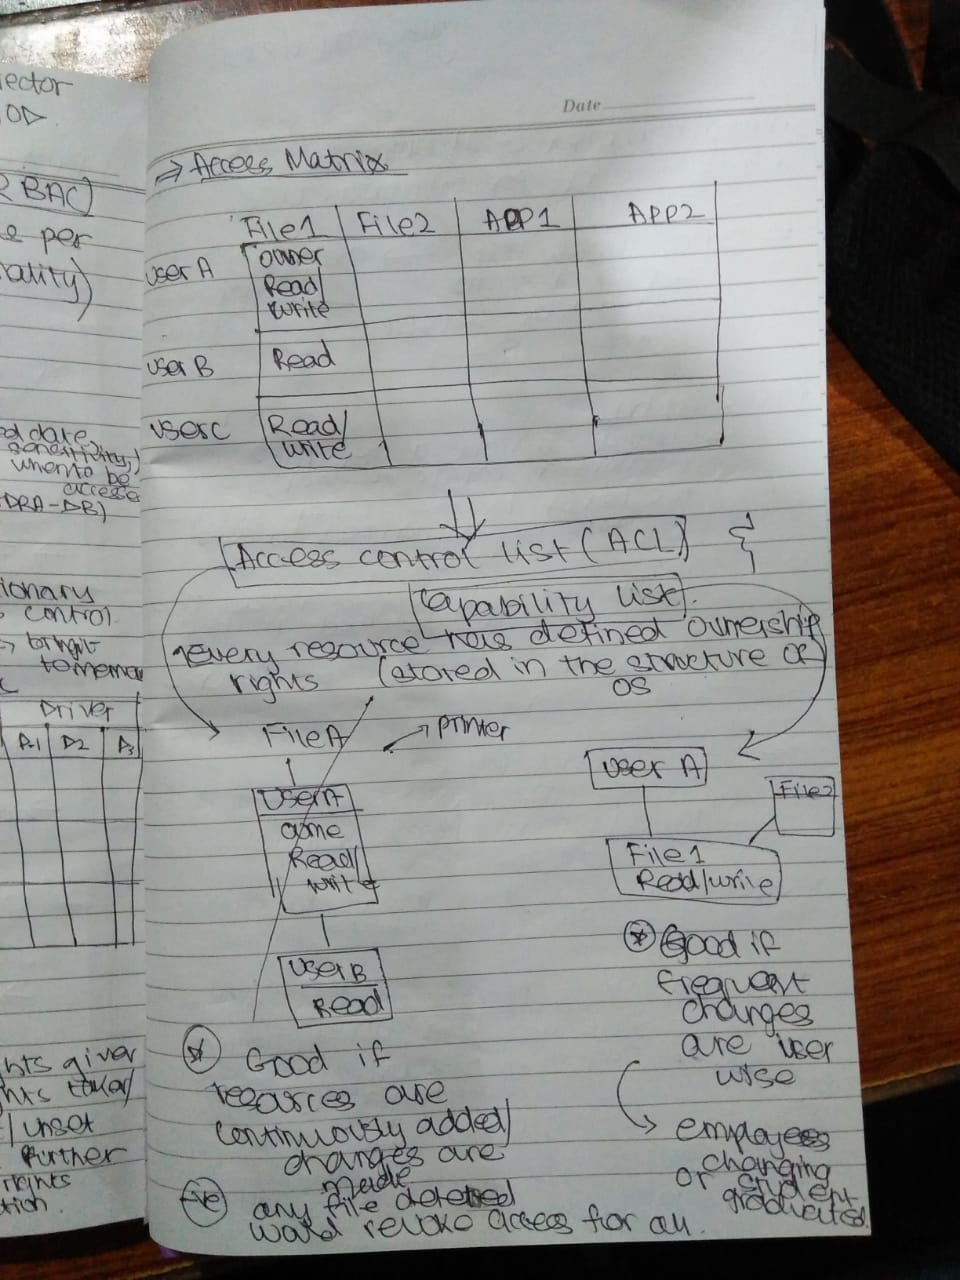 rector
OD
RBAC)
e per
ality)
ed date
sensitivity)
when to be
accesse
DRA-DB)
tionary
control
→ bring it
to memor
Driver
D1 D2 D3
hts given
hts taken/
/unset
further
rights
tion
Date
⇒ Access Matrix
File1 File2 APP1 APP2
user A owner
Read/
write
user B Read
user C Read/
write
Access control list (ACL)
Capability list.
every resource has defined ownership
rights (stored in the structure of
OS
File A → printer
User A
Read/
write
User B
Read
User A
File2
File1
Read/write
Good if
resources are
continuously added/
changes are
made
+ve any file deleted
would revoke access for all.
Good if
frequent
changes
are user
wise
→ employees
changing
or student
graduated.